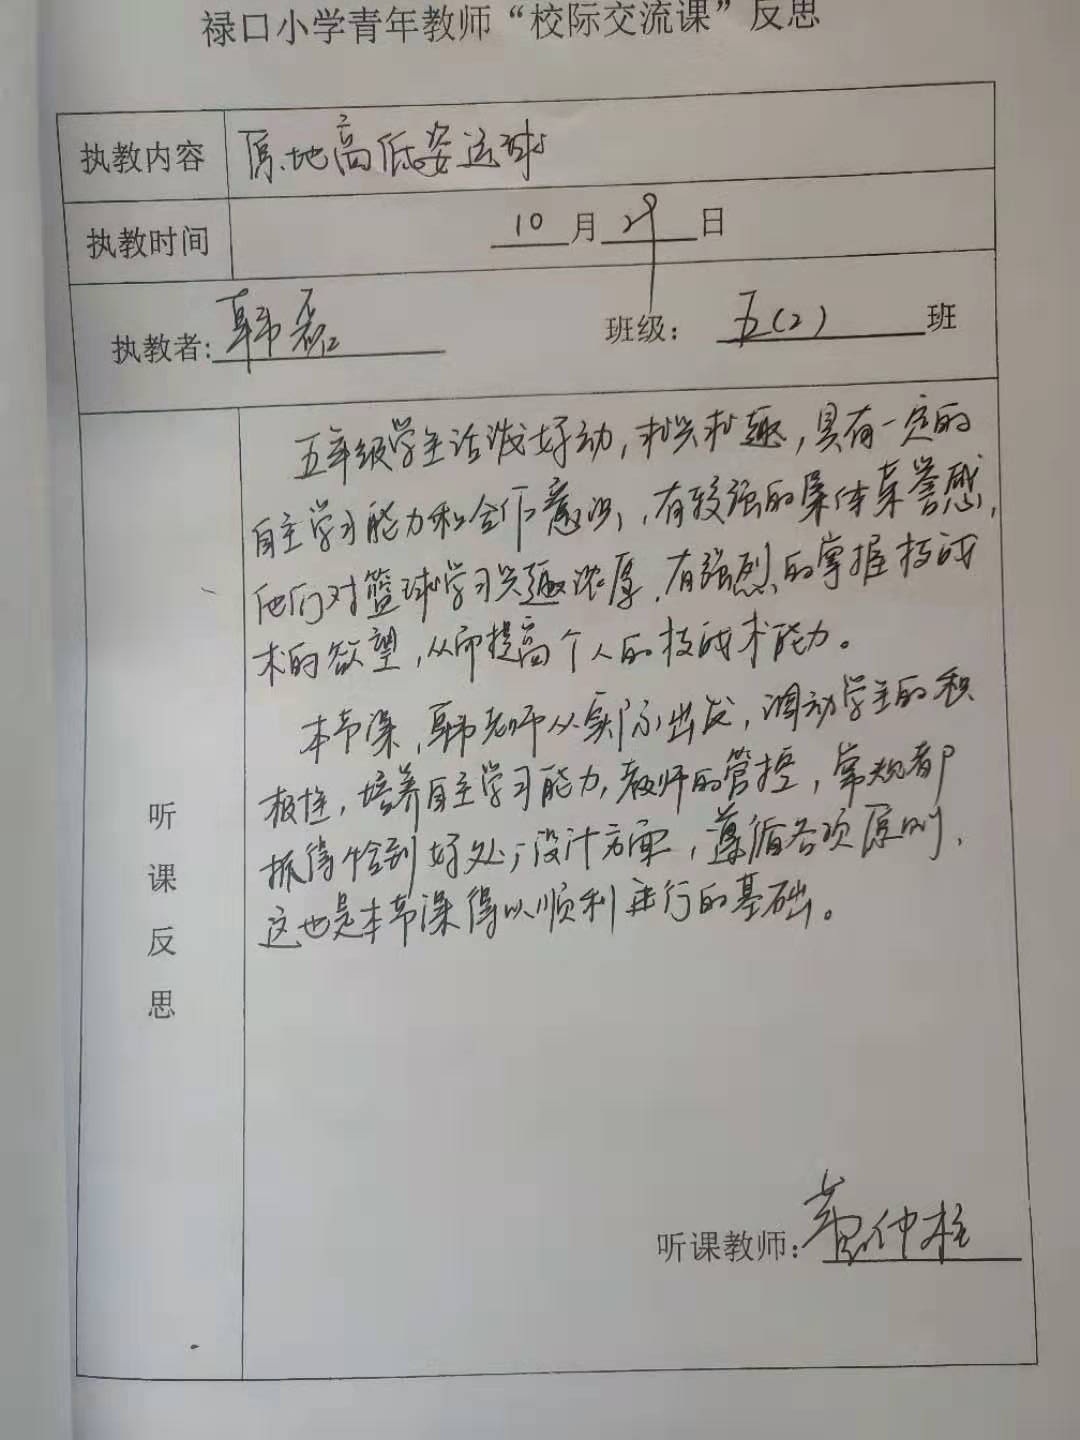 禄口小学青年教师“校际交流课”反思
执教内容 原地高低姿运球
执教时间 10月29日
执教者:韩磊 班级: 五(2)班
五年级学生活泼好动,求兴求趣,具有一定的
自主学习能力和合作意识,有较强的集体荣誉感,
他们对篮球学习兴趣浓厚,有强烈的掌握技战
术的欲望,从而提高个人的技战术能力。
本节课,韩老师从实际出发,调动学生的积
极性,培养自主学习能力,教师的管控,常规都
抓得恰到好处;设计方案,遵循各项原则,
这也是本节课得以顺利进行的基础。
听
课
反
思
听课教师: 仲柱